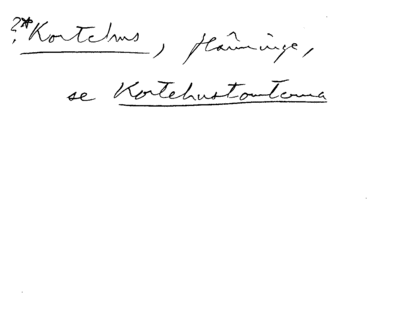 ?* Kortehus, Häminge,
se Kortehustomterna